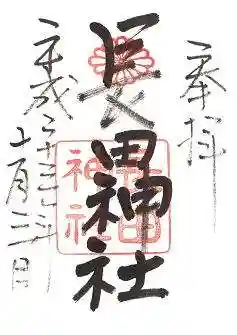 奉拝
長田神社
平成二十三年
十月三日
長田
神社